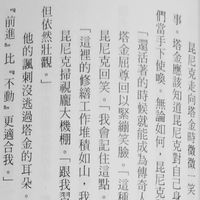 昆尼克走向塔金時微微一笑
事。塔金應該知道昆尼克對自己身
們當手下使喚。無論如何，昆尼克
「還活著的時候就能成為傳奇人
塔金屈尊回以緊繃笑臉。「這種
昆尼克回笑。「我會記住這點。
「這裡的修繕工作堆積如山，我
昆尼克掃視龐大機棚。「跟我習
但依然壯觀。」
他的諷刺沒逃過塔金的耳朵。
『前進』比『不動』更適合我。」